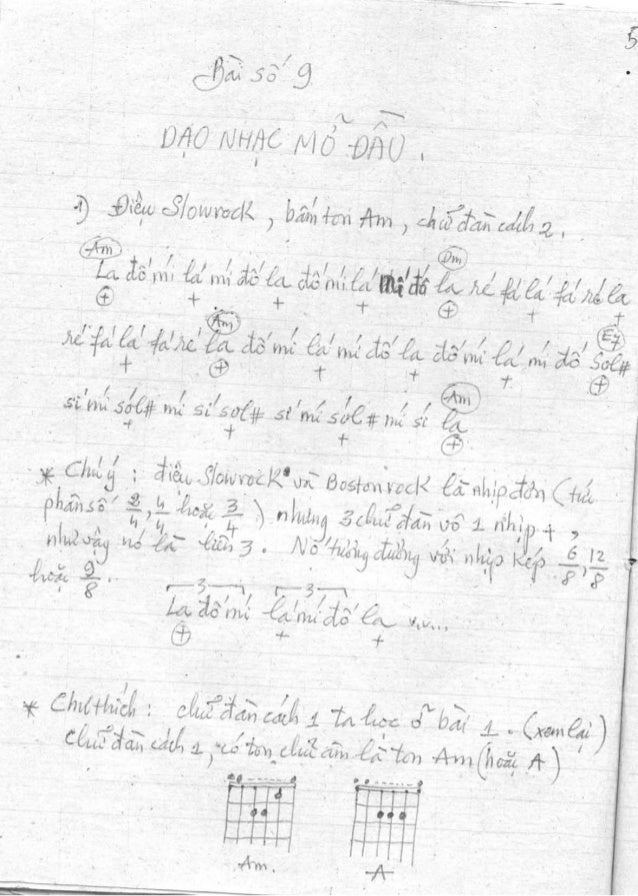 5
Bài số 9
DẠO NHẠC MỞ ĐẦU.
1) Điệu Slowrock, bấm ton Am, chữ đàn cách 2.
Am Dm
La đố mí lá mí đố la đố mí lá mí đố la ré fá lá fá ré la
+ + + + + + +
Am E7
ré fá lá fá ré la đố mí lá mí đố la đố mí lá mí đố sol#
+ + + + + +
Am
sí mí sól# mí sí sol# sí mí sól# mí sí la
+ + + +
* Chú ý : điệu Slowrock và Bostonrock là nhịp đơn (tức
phân số 2/4, 4/4 hoặc 3/4) nhưng 3 chữ đàn vô 1 nhịp +,
như vậy nó là liên 3. Nó tương đương với nhịp kép 6/8, 12/8
hoặc 9/8.
3 3
La đố mí lá mí đố la v.v...
+ + +
* Chú thích : chữ đàn cách 1 ta học ở bài 1. (xem lại)
chữ đàn cách 1, có ton chủ âm là ton Am (hoặc A)
Am. A